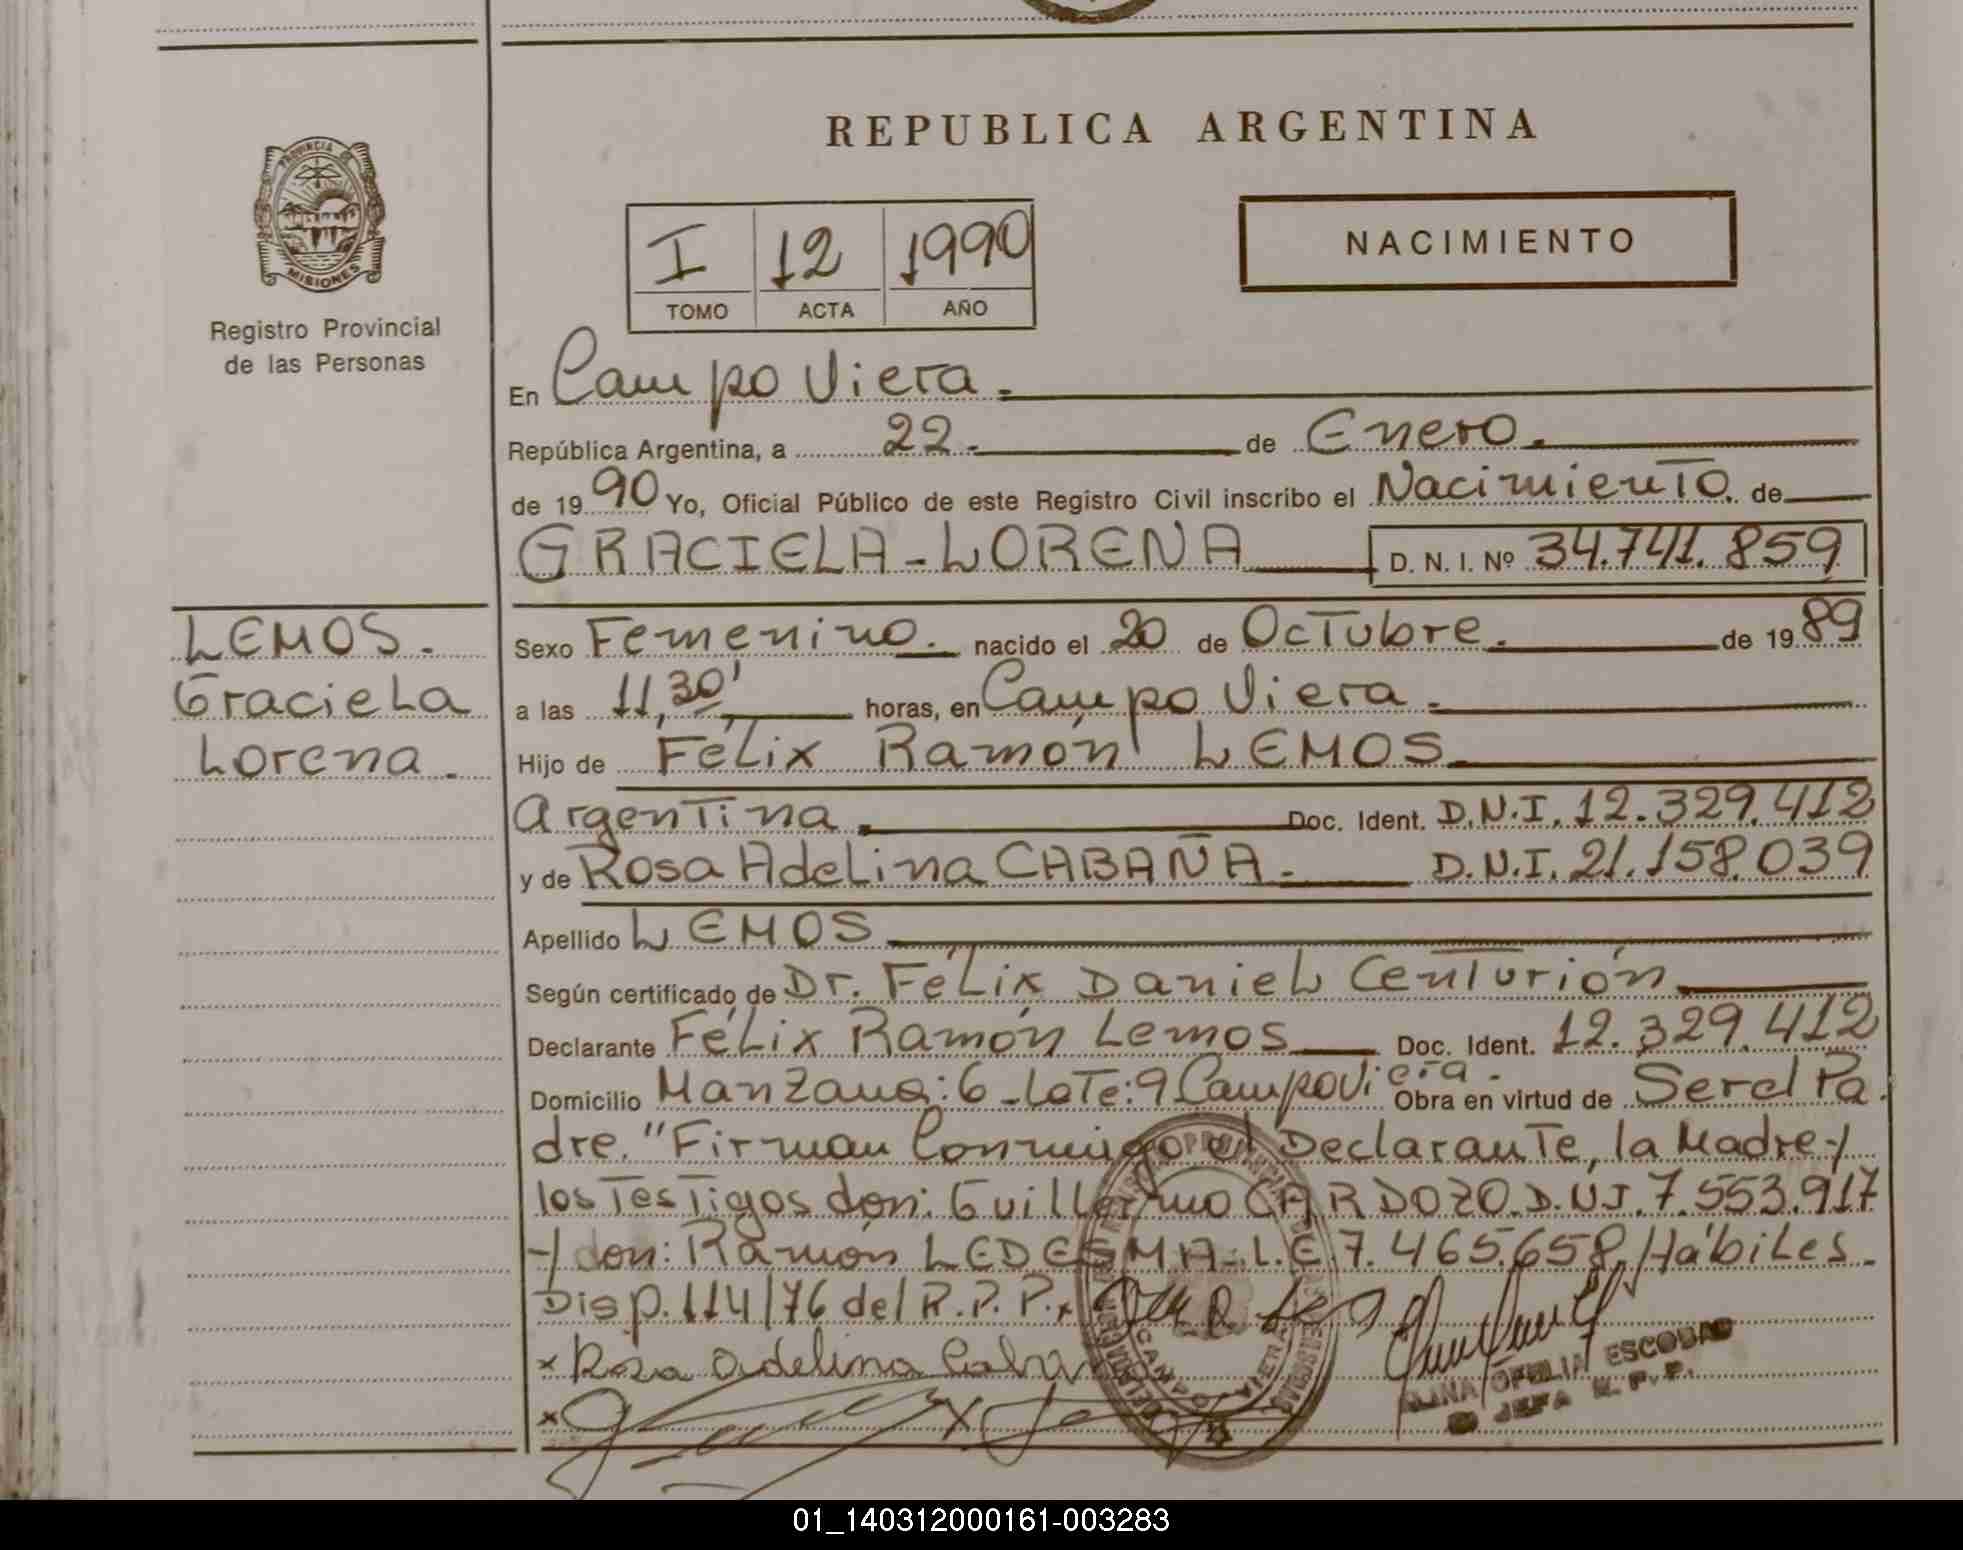 REPUBLICA ARGENTINA
PROVINCIA DE
MISIONES
Registro Provincial
de las Personas
I 12 1990
TOMO ACTA AÑO
NACIMIENTO
En Campo Viera.
República Argentina, a 22. de Enero.
de 19 90 Yo, Oficial Público de este Registro Civil inscribo el Nacimiento. de
GRACIELA-LORENA D. N. I. Nº 34.741.859
LEMOS.
Graciela
Lorena.
Sexo Femenino. nacido el 20 de Octubre. de 19 89
a las 11,30' horas, en Campo Viera.
Hijo de Félix Ramón LEMOS
Argentina. Doc. Ident. D.N.I. 12.329.412
y de Rosa Adelina CABAÑA. D.N.I. 21.158.039
Apellido LEMOS
Según certificado de Dr. Félix Daniel Centurión
Declarante Félix Ramón Lemos Doc. Ident. 12.329.412
Domicilio Manzana: 6-Lote: 9 Campo Viera. Obra en virtud de Ser el Pa
dre. "Firman Conmigo el Declarante, la Madre y
los Testigos don: Guillermo CARDOZO. D.N.I. 7.553.917
y don: Ramón LEDESMA-L.E. 7.465.658. Hábiles.
Disp. 114/76 del R.P.P.
x Rosa Adelina
OFELIA ESCOBAR
JEFA R. P. P.
01_140312000161-003283